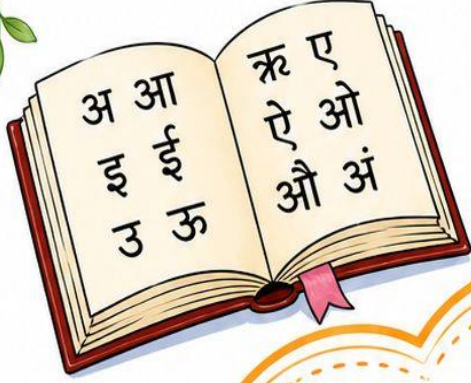 अ आ
इ ई
उ ऊ
ऋ ए
ऐ ओ
औ अं